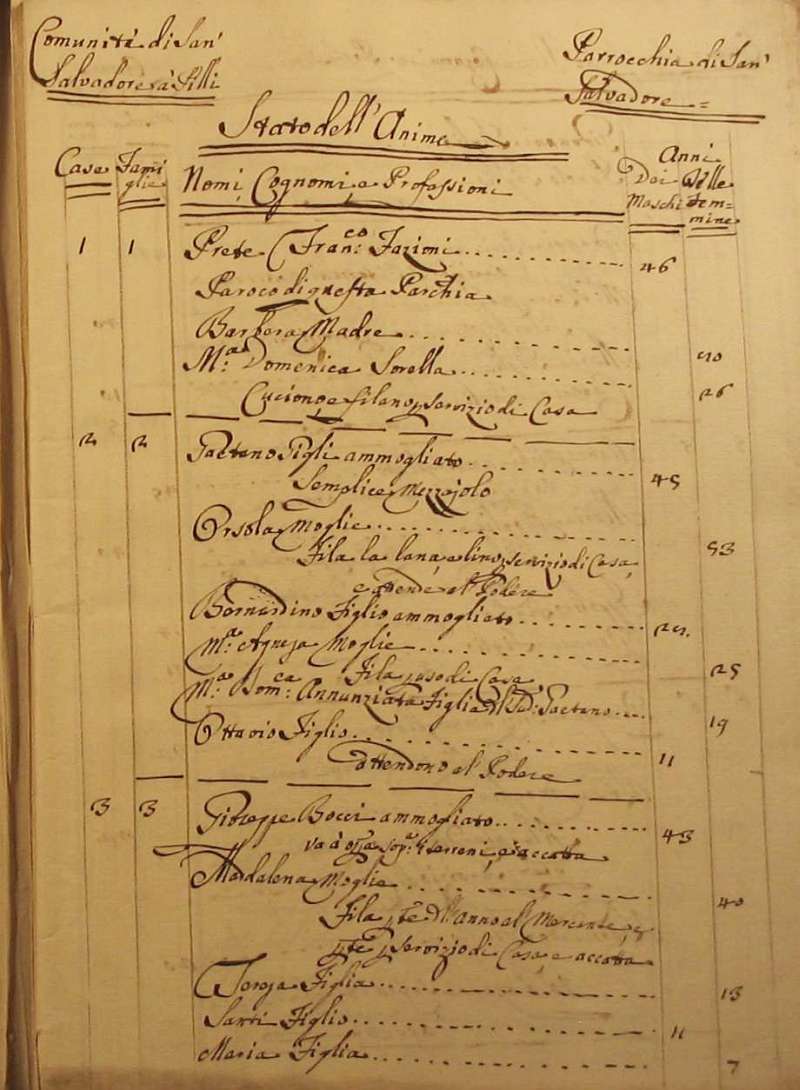 Comunità di San'
Salvadore à Pilli
Parrocchia di San'
Salvadore =
Stato dell'Anime
Case Fami
glie
Nomi, Cognomi, e Professioni
Anni
Dei Delle
Maschi Fem=
mine
1 1 Prete Fran:co Fazioni 46
Paroco di questa Parchia
Barbera Madre 70
M.a Domenica Sorella 26
Cuciono, e filano p servizio di Casa
2 2 Gaetano Pigli ammogliato 45
Semplice Mezzajolo
Orsola Moglie 53
Fila la lana, e lino p servizio di Casa,
e attende al Podere
Bernardino Figlio ammogliato 24.
M.a Agnesa Moglie 25
Fila p uso di Casa
M.a Dom:ca Annunziata Figlia di Sud: Gaetano 19
Ottavio Figlio 11
attendono al Podere
3 3 Giuseppe Bocci ammogliato 43
va à opra sop.a i terreni, e accatta
Madalena Moglie 40
Fila pte dell'Anno al Mercante, e
pte p servizio di Casa, e accatta
Teresa Figlia 13
Santi Figlio 11
Maria Figlia 7